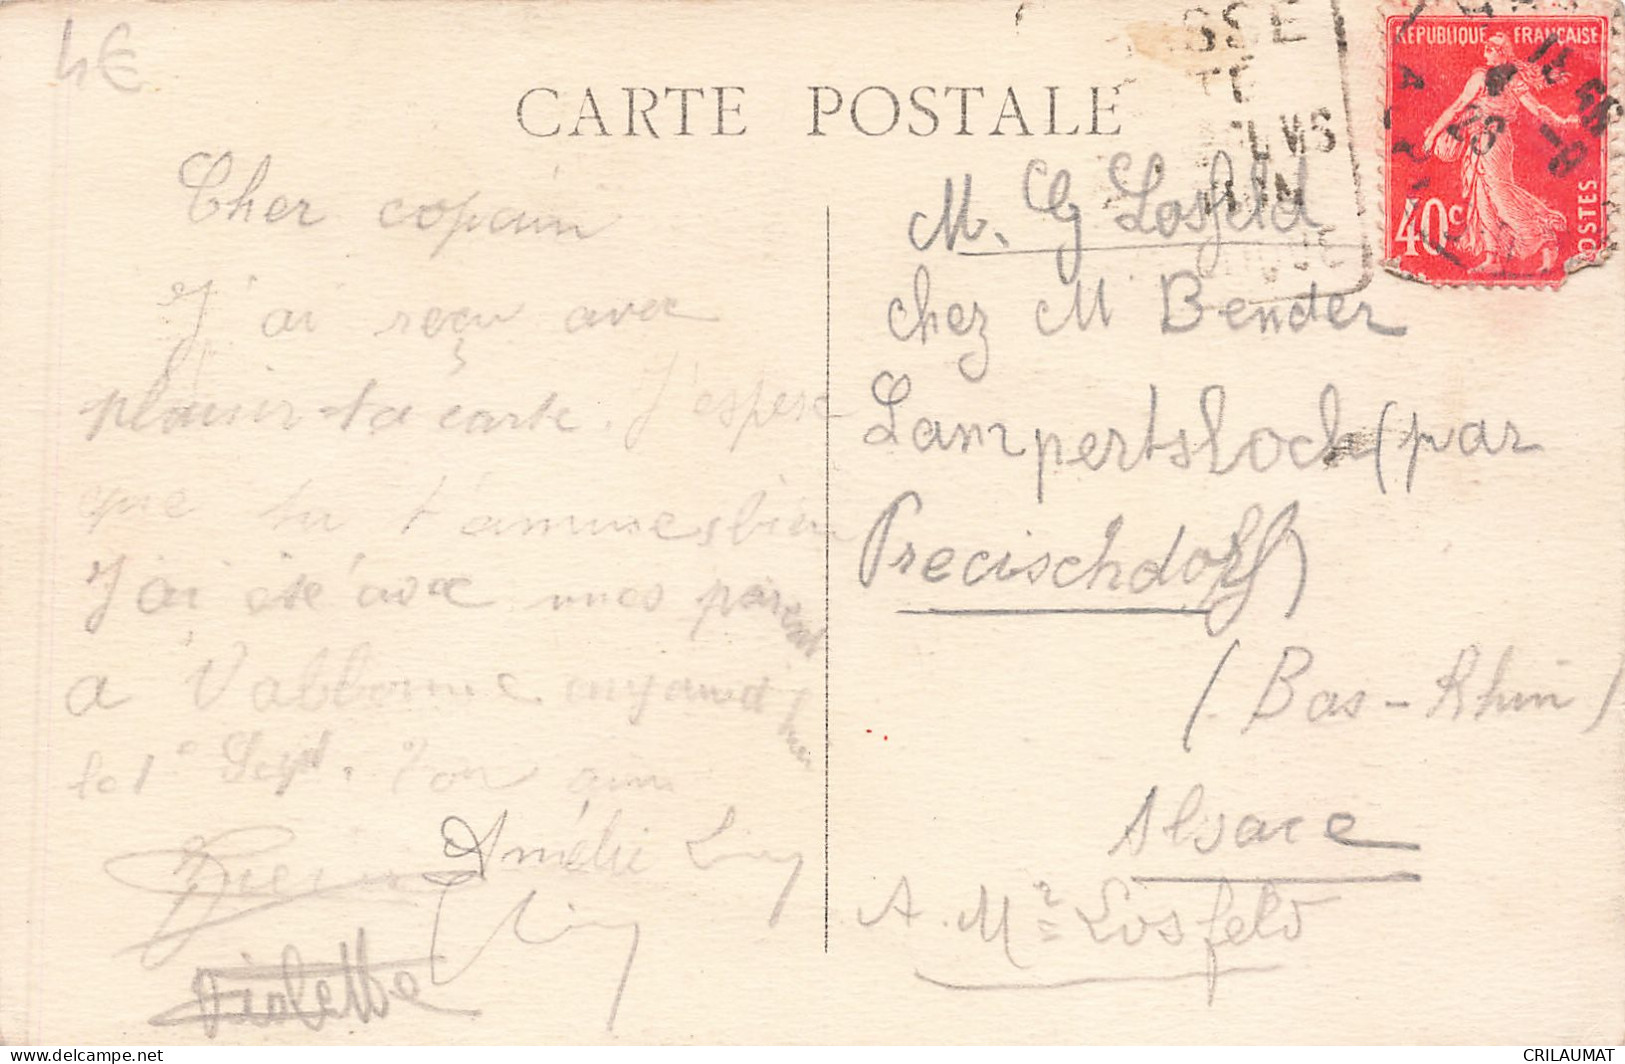 4€
CARTE POSTALE
Cher copain
J'ai reçu avec
plaisir ta carte. J'espère
que tu t'amuses bien
J'ai été avec mes parents
a Valbonne
le 1e Sept. Ton ami
Amélie
Violette
M. G Losfeld
chez M Bender
Lampertsloch (par
Precischdorf)
(Bas-Rhin)
Alsace
A. Mr Losfeld
REPUBLIQUE FRANÇAISE
40c
POSTES
delcampe.net
CRILAUMAT